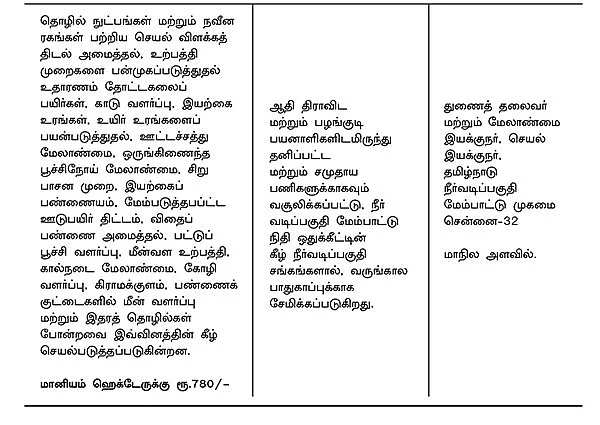 தொழில் நுட்பங்கள் மற்றும் நவீன
ரகங்கள் பற்றிய செயல் விளக்கத்
திடல் அமைத்தல், உற்பத்தி
முறைகளை பன்முகப்படுத்துதல்
உதாரணம் தோட்டகலைப்
பயிர்கள், காடு வளர்ப்பு, இயற்கை
உரங்கள், உயிர் உரங்களைப்
பயன்படுத்துதல், ஊட்டச்சத்து
மேலாண்மை, ஒருங்கிணைந்த
பூச்சிநோய் மேலாண்மை, சிறு
பாசன முறை, இயற்கைப்
பண்ணையம், மேம்படுத்தபப்ட்ட
ஊடுபயிர் திட்டம், விதைப்
பண்ணை அமைத்தல், பட்டுப்
பூச்சி வளர்ப்பு, மீன்வள உற்பத்தி,
கால்நடை மேலாண்மை, கோழி
வளர்ப்பு, கிராமக்குளம், பண்ணைக்
குட்டைகளில் மீன் வளர்ப்பு
மற்றும் இதரத் தொழில்கள்
போன்றவை இவ்வினத்தின் கீழ்
செயல்படுத்தப்படுகின்றன.
மானியம் ஹெக்டேருக்கு ரூ.780/-
ஆதி திராவிட
மற்றும் பழங்குடி
பயனாளிகளிடமிருந்து
தனிப்பட்ட
மற்றும் சமுதாய
பணிகளுக்காகவும்
வசூலிக்கப்பட்டு, நீர்
வடிப்பகுதி மேம்பாட்டு
நிதி ஒதுக்கீட்டின்
கீழ் நீர்வடிப்பகுதி
சங்கங்களால், வருங்கால
பாதுகாப்புக்காக
சேமிக்கப்படுகிறது.
துணைத் தலைவர்
மற்றும் மேலாண்மை
இயக்குநர், செயல்
இயக்குநர்,
தமிழ்நாடு
நீர்வடிப்பகுதி
மேம்பாட்டு முகமை
சென்னை-32
மாநில அளவில்.